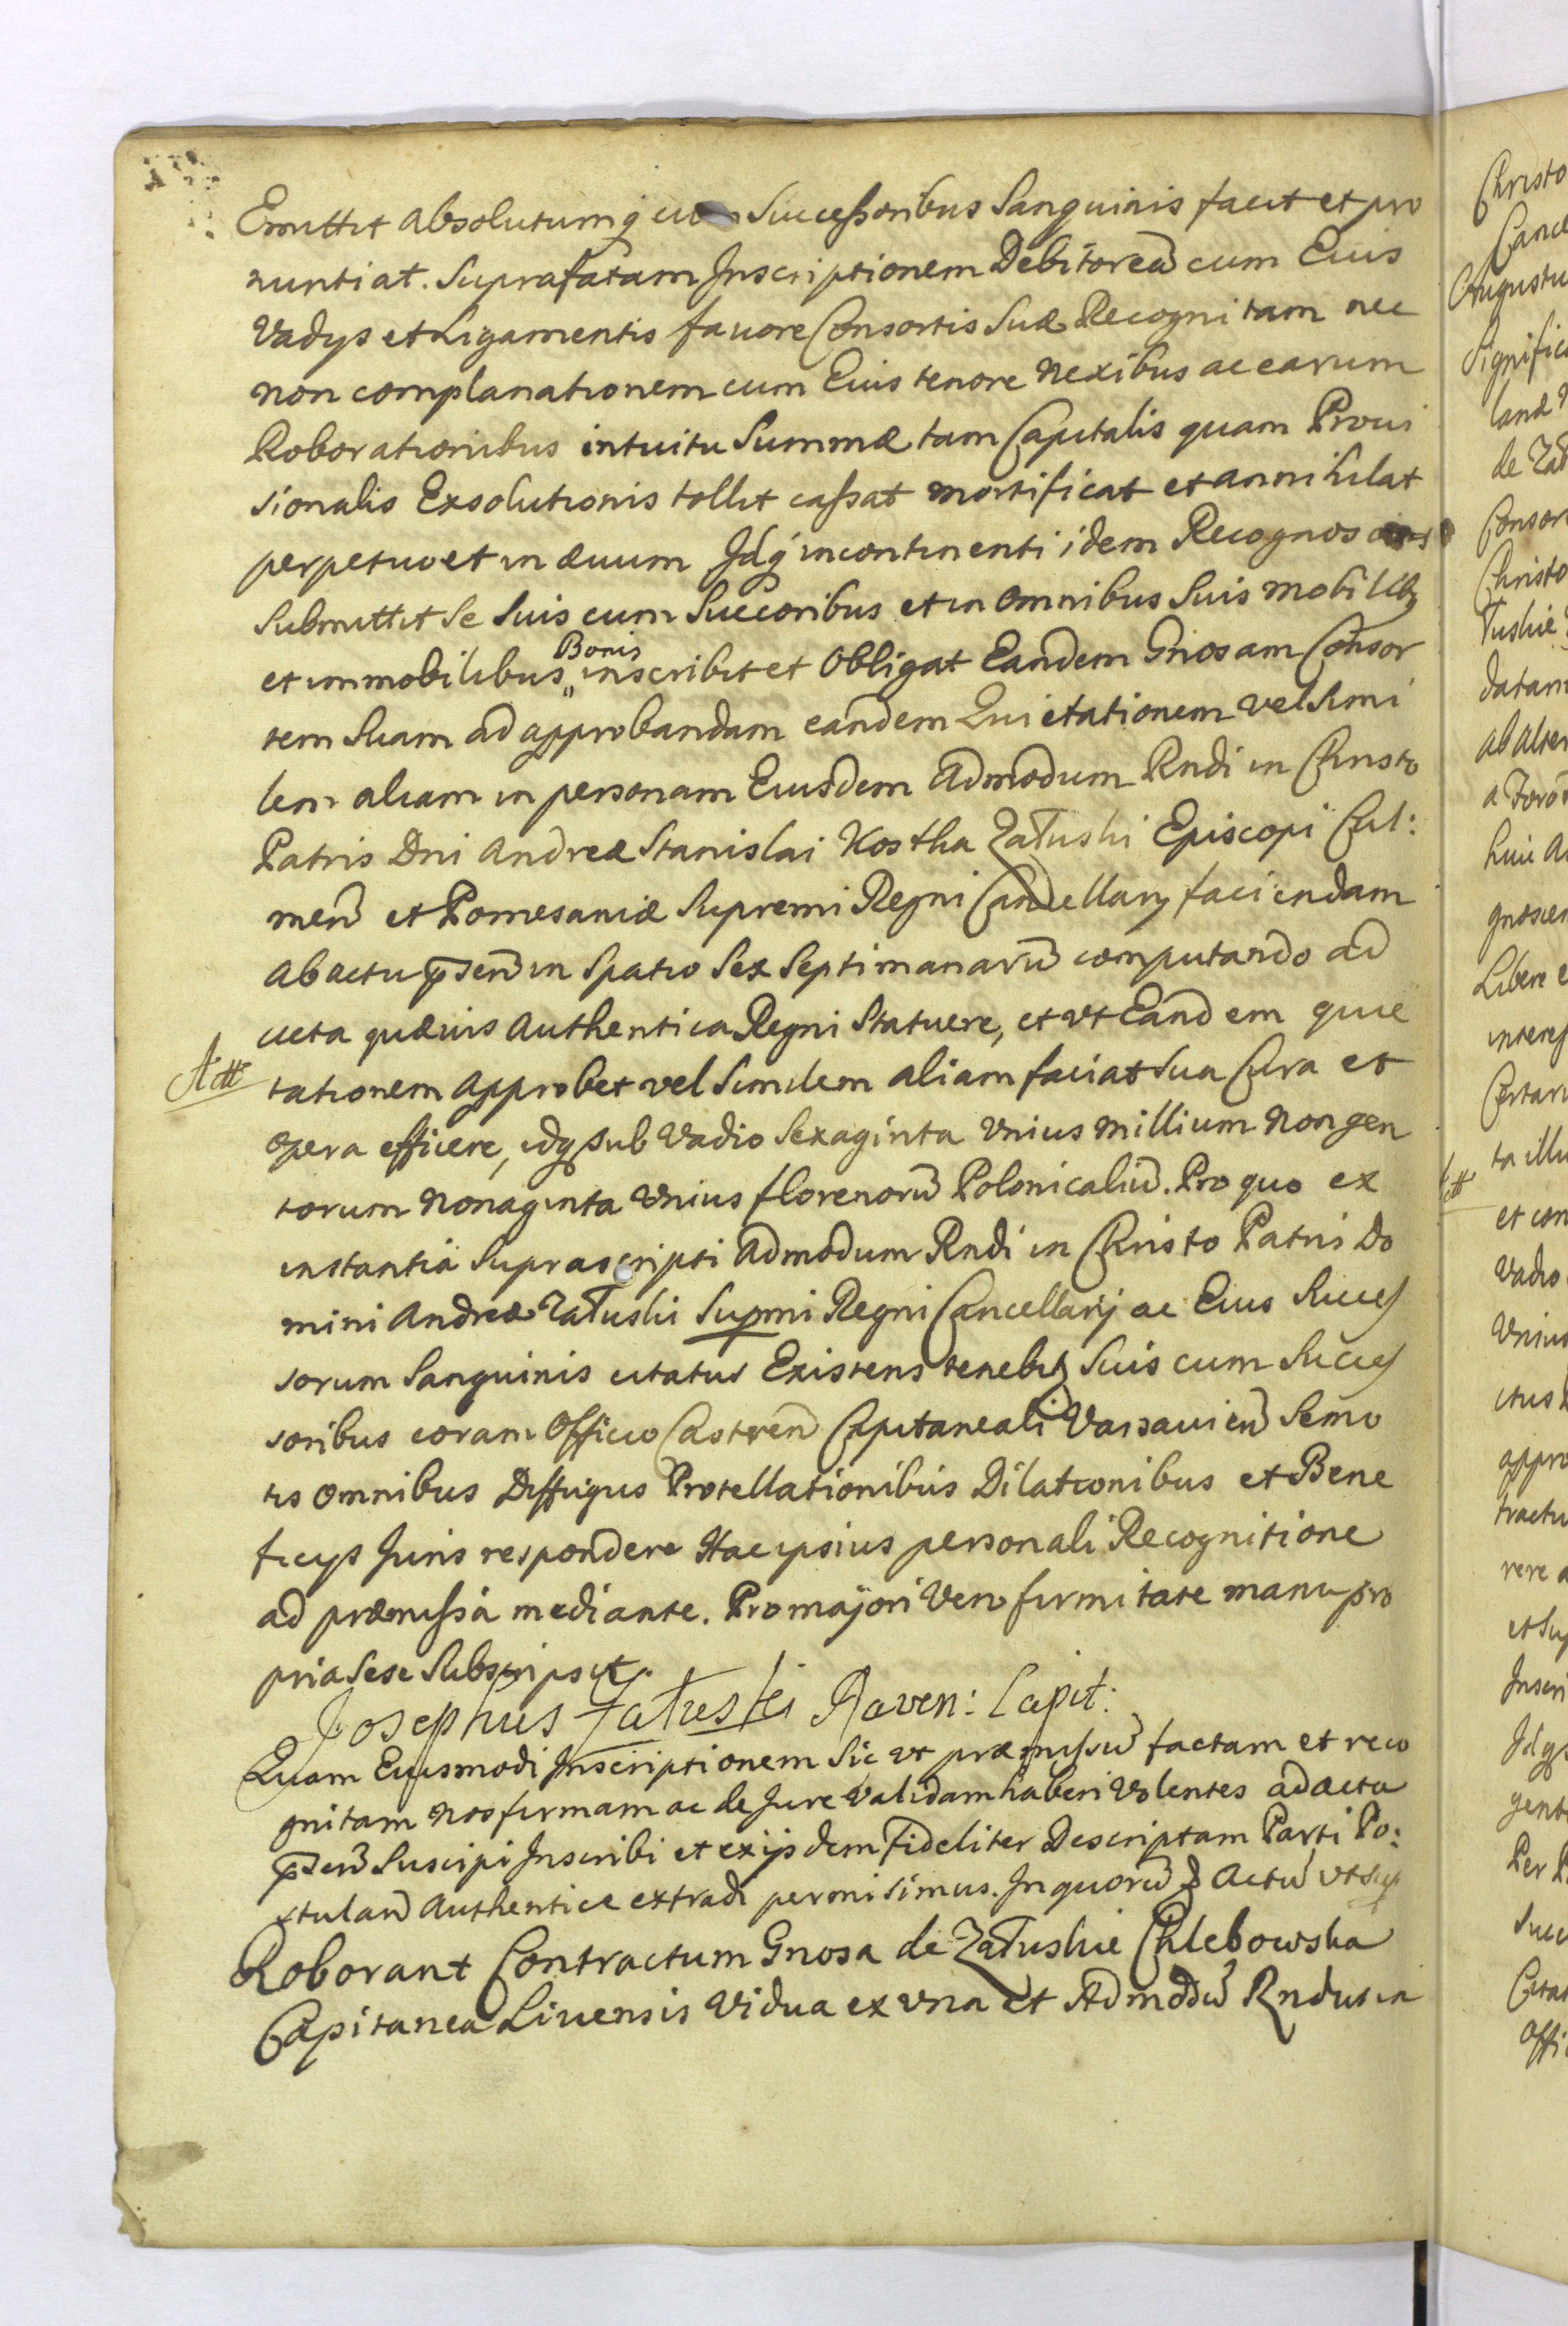 Emittit absolutumq cum Successoribus Sanguinis facit et pro
nuntiat. Suprafatam Inscriptionem Debitoreã cum Eius
Vadys et Ligamentis favore Consortis Suæ Recognitam nec
non complanationem cum Eius tenore nexibus ac earum
Roborationibus intuitu Summæ tam Capitalis quam Provi
sionalis Exsolutionis tollit cassat mortificat et annihilat
perpetuo et in ævum Idq incontinenti idem Recognoscens
Submittit Se Suis cum Succoribus et in Omnibus Suis mobilibq
Bonis
et immobilibus,, inscribit et Obligat Eandem Gnosam Consor
tem Suam ad approbandam eandem Quietationem vel Simi
lem aliam in personam Eiusdem Admodum Rndi in Christo
Patris Dni Andreæ Stanislai Kostka Załuski Episcopi Cul:
men̄ et Pomesaniæ Supremi Regni Cancellary faciendam
ab actu p̄sen̄ in Spatio Sex Septimanarū computando ad
acta quævis Authentica Regni Statuere, et ut Eandem quie
Att
tationem approbet vel Similem aliam faciat Sua Cura et
Opera efficere, idq Sub Vadio Sexaginta Unius millium Nongen
torum Nonaginta Unius florenorū Polonicaliū. Pro quo ex
instantia Suprascripti Admodum Rndi in Christo Patris Do
mini Andreæ Załuski Supmi Regni Cancellarij ac Eius Succes
sorum Sanguinis citatus Existens tenebit Suis cum Succes
soribus coram Officio Castren̄ Capitaneali Varsavien̄ Semo
tis Omnibus Diffugys Protellationibus Dilationibus et Bene
ficys Juris respondere Hac ipsius personali Recognitione
ad præmissa mediante. Pro majori Vero firmitate manu pro
pria Sese Subscripsit.
Josephus Załuski Raven: Capit:
Quam Eiusmodi Inscriptionem Sic ut præmissū factam et reco
gnitam Nos firmam ac de Jure Validam haberi Volentes ad acta
p̄sen̄ Suscipi Inscribi et ex ijsdem Fideliter Descriptam Parti Po:
stulan̄ Authentice extradi permisimus. In quorū Actū ut sup
Roborant Contractum Gnosa de Załuskie Chlebowska
Capitanea Livensis Vidua ex una et Admodū Rndus in
Christo
Significa
de Zał
Consor
Christo
datam
ab alter
Libere e
et con
Vadio
Unius
appro
tractu
vere a
et Sup
Inscri
Idq
gent
Per P
Succ
Citat
Offic